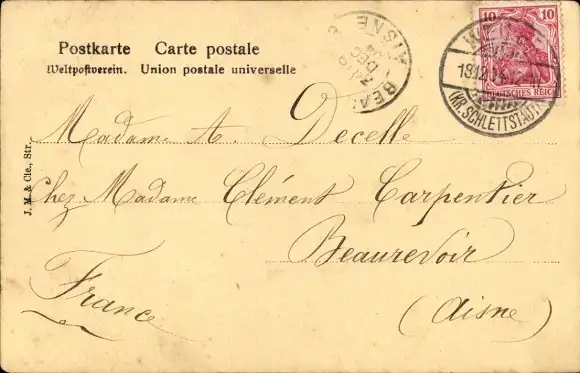 Postkarte Carte postale
Weltpostverein. Union postale universelle
10 10
DEUTSCHES REICH
(KR. SCHLETTSTADT)
AISNE
DEC
Madame A. Decelle
chez Madame Clément Carpentier
Beaurevoir
(Aisne)
France
J. M. & Cie., Str.